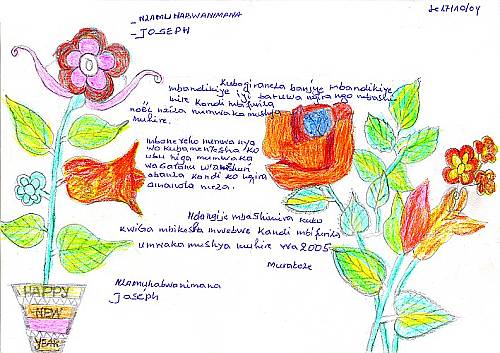 NZAMUHABWANIMANA
JOSEPH
le 27/10/04
Kubagiraneza banjye mbandikiye
mbandikiye iyi baruwa ngira ngo mbashi
mire kandi mbifuriza
noël nziza numwaka mushya
muhire.
mboneraho numwanya
wo kubamenyesha ko
ubu niga mumwaka
wa gatanu w'amashuri
abanza kandi ko ngira
amanota meza.
Ndangije mbashimira kuko
kwiga mbikesha mwebwe kandi mbifuriza
umwaka mushya muhire wa 2005
Murakoze
Nzamuhabwanimana
Joseph
HAPPY
NEW
YEAR